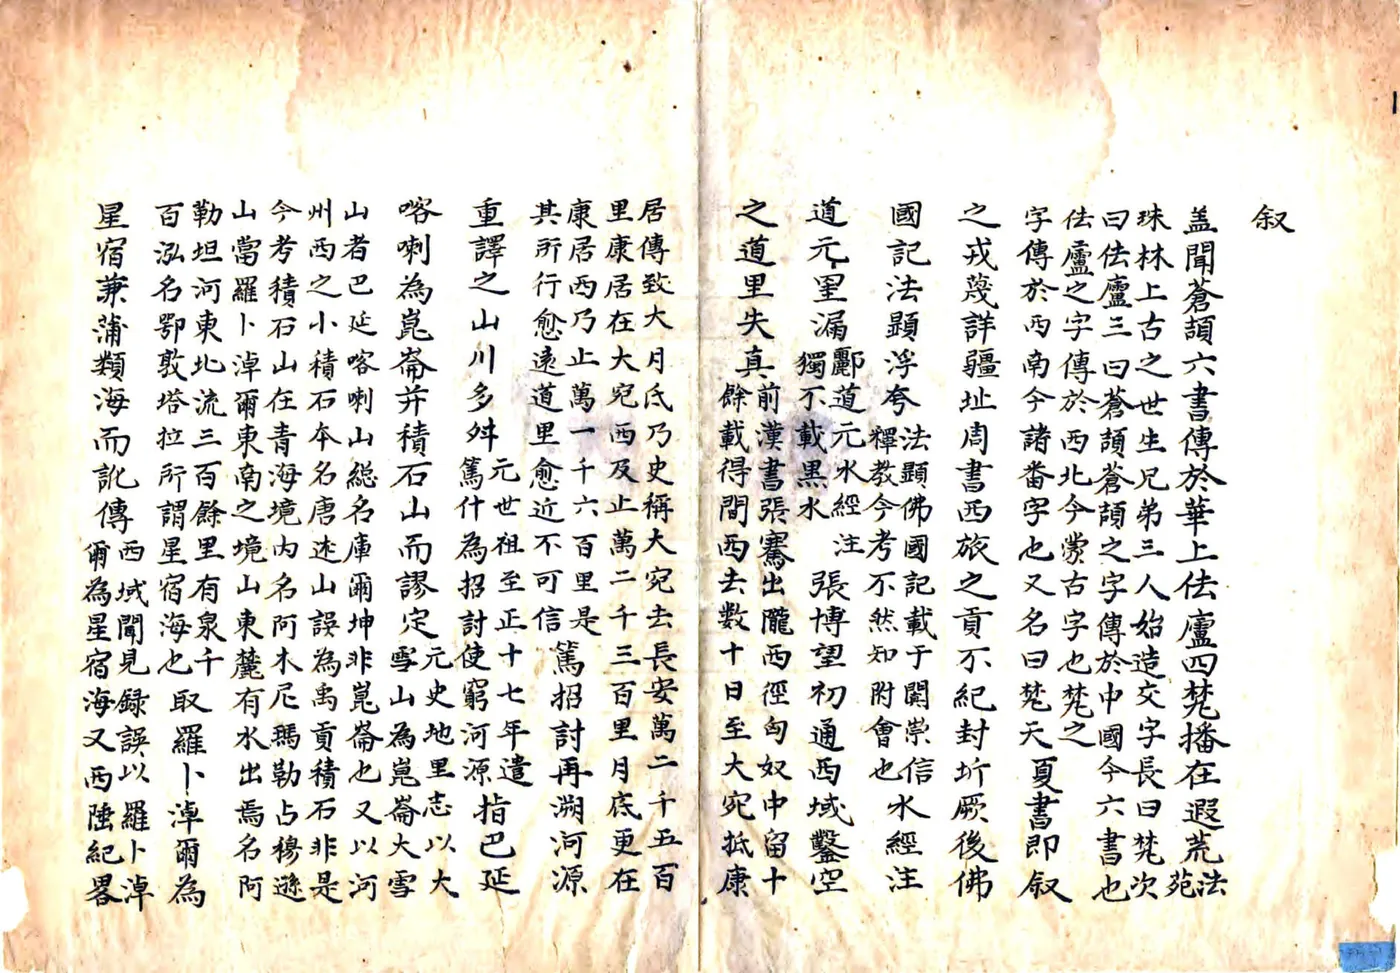 叙
盖聞蒼頡六書傳於華上佉廬四梵播在遐荒法苑
珠林上古之世生兄弟三人始造交字長曰梵次
曰佉廬三曰蒼頡蒼頡之字傳於中國今六書也
佉廬之字傳於西北今蒙古字也梵之
字傳於西南今諸番字也又名曰梵天夏書即叙
之戎蔑詳疆址周書西旅之貢不紀封圻厥後佛
國記法顕浮夸法顕佛國記載于闐崇信釋教今考不然知附會也水經注
道元罣漏酈道元水經注獨不載黒水張博望初通西域鑿空
之道里失真前漢書張騫出隴西徑匈奴中留十餘載得間西去數十日至大宛抵康
居傳致大月氏乃史稱大宛去長安萬二千五百
里康居在大宛西及止萬二千三百里月底更在
康居西乃止萬一千六百里是
其所行愈遠道里愈近不可信篤招討再溯河源
重譯之山川多舛元世祖至正十七年遣篤什為招討使窮河源指巴延
喀喇為崑崙并積石山而謬定元史地里志以大雪山為崑崙大雪
山者巴延喀喇山総名庫爾坤非崑崙也又以河
州西之小積石夲名唐述山誤為禹貢積石非是
今考積石山在青海境内名阿木尼瑪勒占穆遜
山當羅卜淖爾東南之境山東麓有水出焉名阿
勒坦河東北流三百餘里有泉千
百泓名鄂敦塔拉所謂星宿海也取羅卜淖爾為
星宿兼蒲類海而訛傳西域聞見録誤以羅卜淖爾為星宿海又西陲紀畧